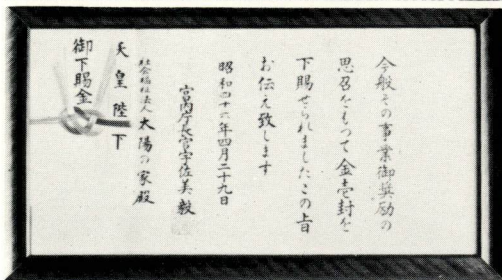 今般その事業御奨励の
思召をもつて金壱封を
下賜せられましたこの旨
お伝え致します
昭和四十六年四月二十九日
宮内庁長官宇佐美毅
社会福祉法人太陽の家殿
天皇陛下
御下賜金